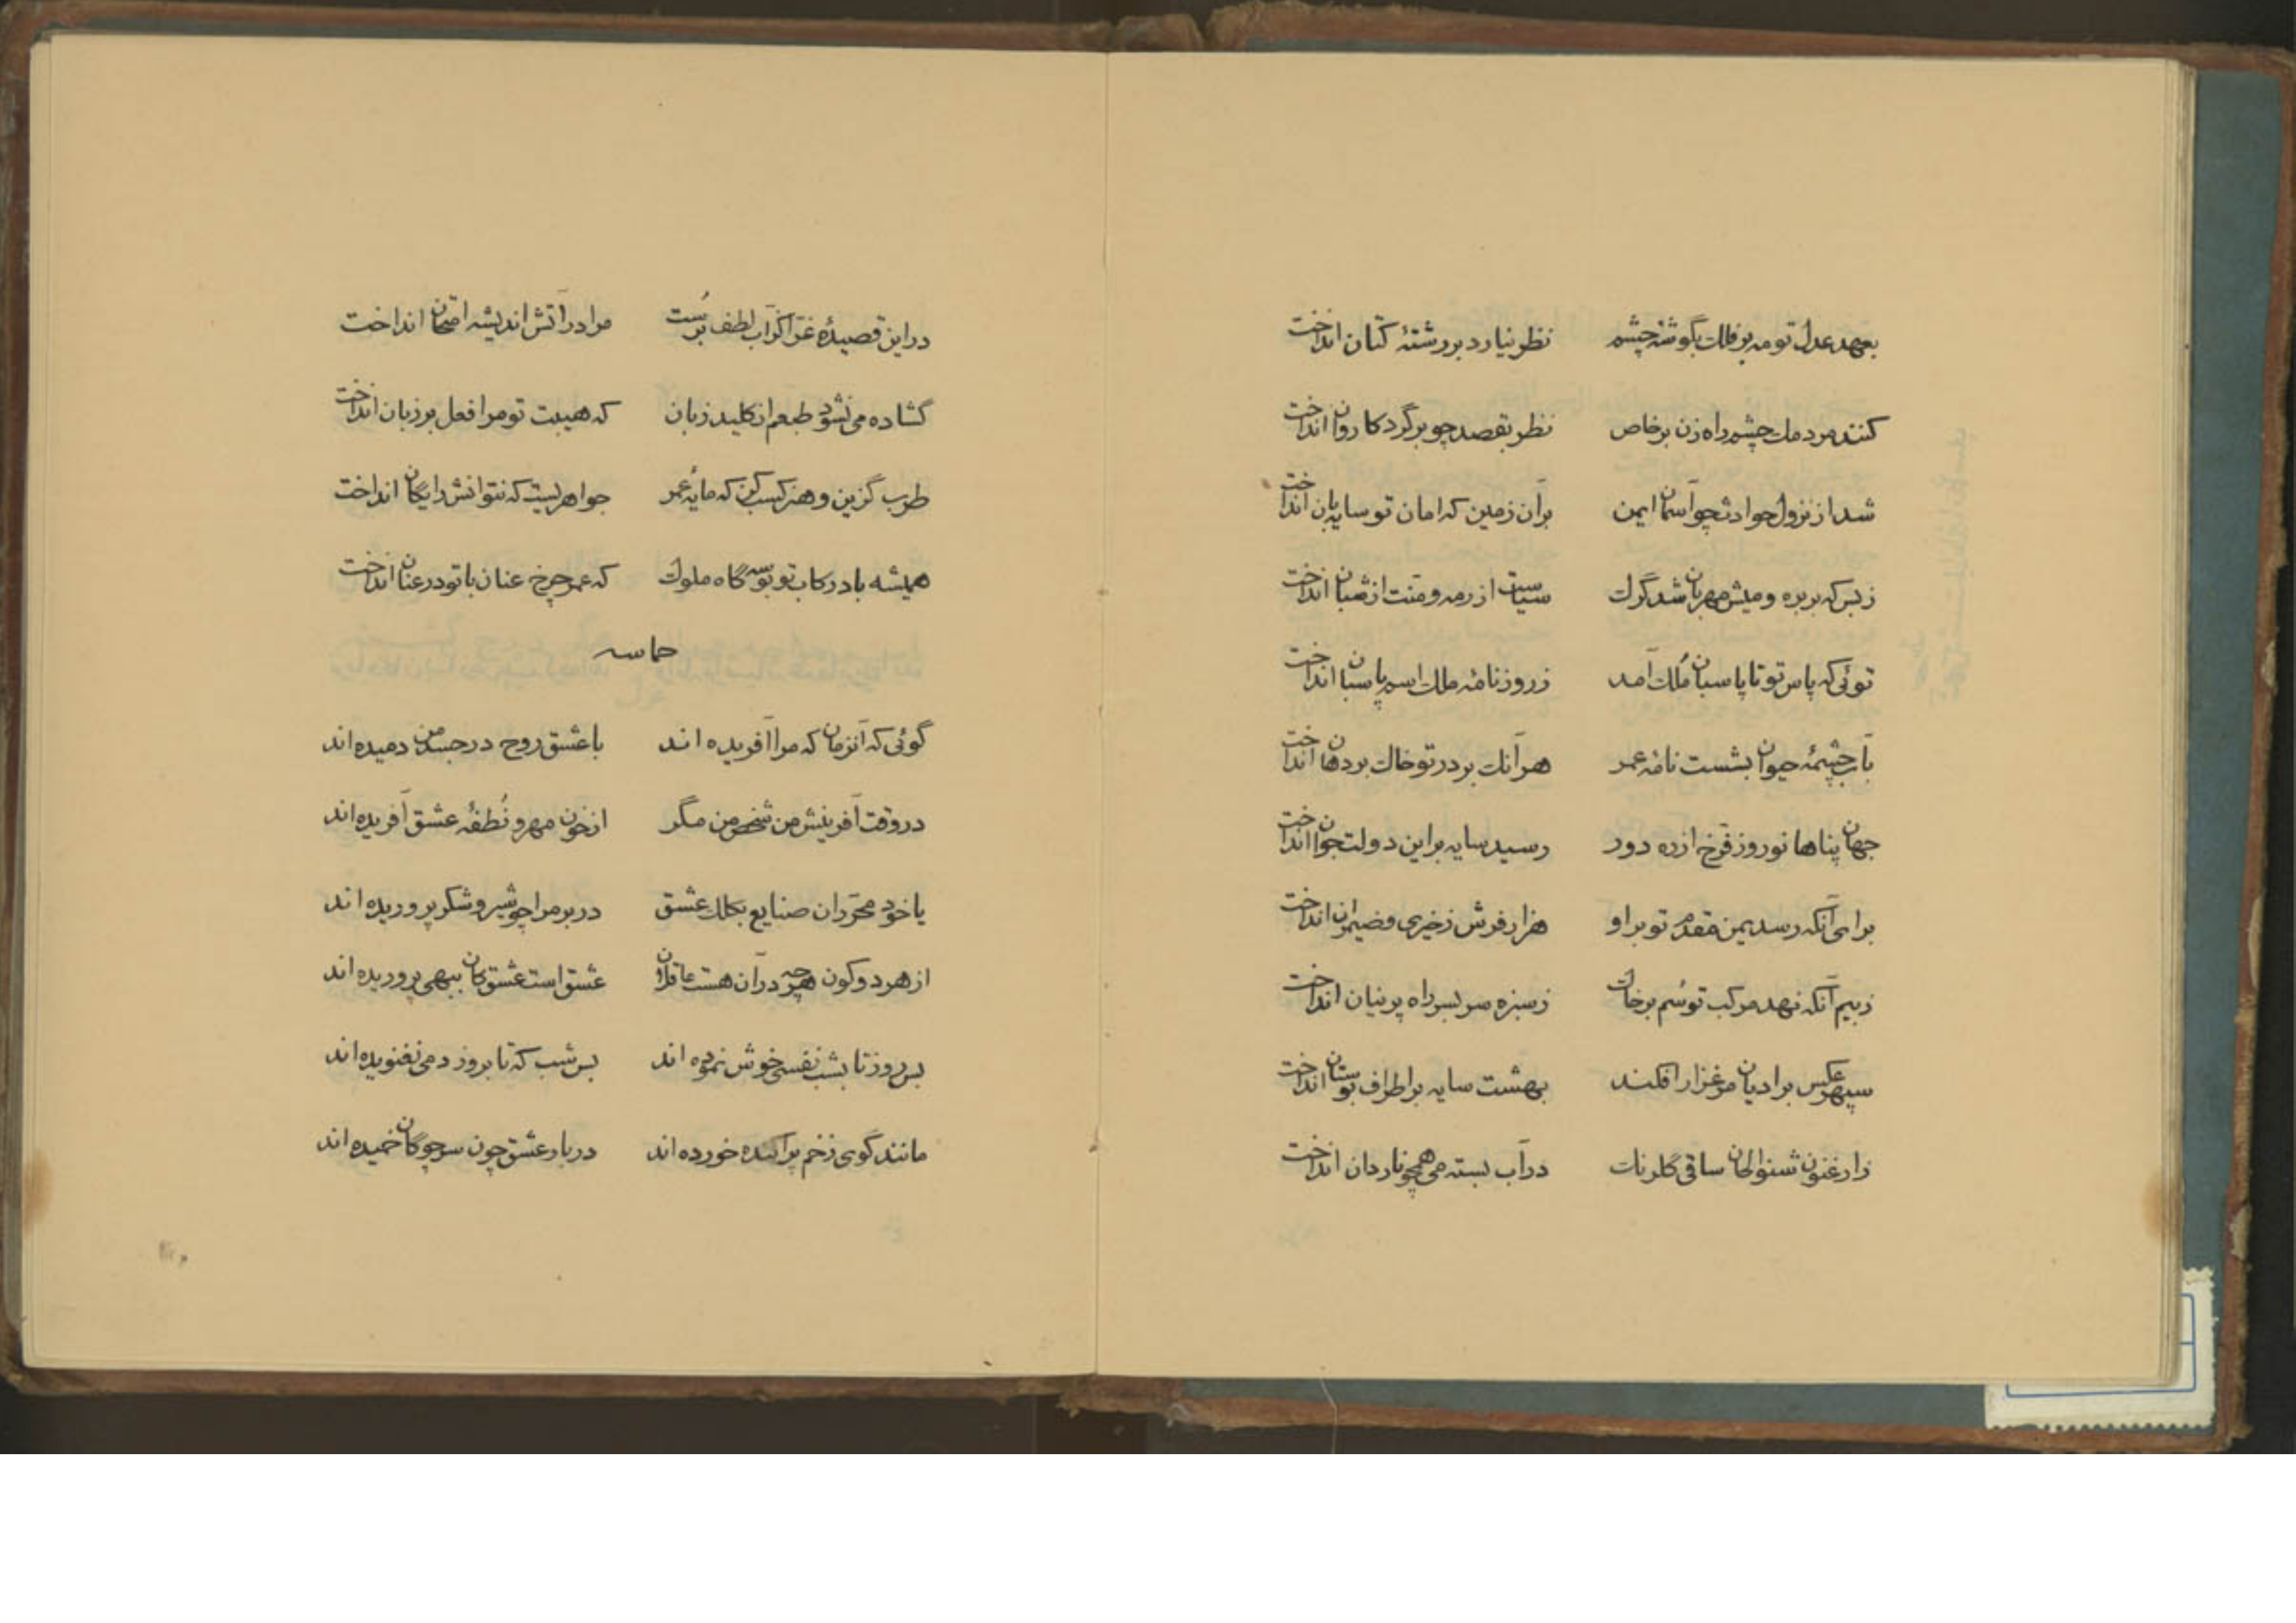 بعهد عدل تو مه بر فلك بگوشۀ چشم نظر نیارد بر رشتۀ كتان انداخت
كنند مردمك چشم راه زن برخاص نظر بقصد چو بر گرد كاروان انداخت
شد از نزول حوادث چو آسمان ایمن بر آن زمین كه امان تو سایه بان انداخت
ز بس كه بر بره و میش مهربان شد گرگ سیاست از رمه و منت از شبان انداخت
توئی كه پاس تو تا پاسبان مُلك آمد ز روزنامۀ ملك اسم پاسبان انداخت
بآب چشمۀ حیوان بشست نامۀ عمر هر آنك بر در تو خاك بر دهان انداخت
جهان پناها نوروز فرّخ از ره دور رسید سایه بر این دولت جوان انداخت
برای آنكه رسد یمن مقدم تو بر او هزار فرش ز خیری و ضیمران انداخت
ز بیم آنكه نهد مركب تو سُم بر خاك ز سبزه سر بسر راه پرنیان انداخت
سپهر عكس بر ادیان مرغزار افكند بهشت سایه بر اطراف بوستان انداخت
ز ارغنون شنو الحان ساقی گلرنك در آب بسته می همچو ناردان انداخت
در این قصیدۀ غرّا كز آب لطف برُست مرا در آتش اندیشه امتحان انداخت
گشاده می نشود طبعم از كلید زبان كه هیبت تو مرا قفل بر زبان انداخت
طرب گزین و هنر كسب كن كه مایۀ عمر جواهریست كه نتوانش رایگان انداخت
همیشه باد ركاب تو بوسه گاه ملوك كه عمر چرخ عنان با تو در عنان انداخت
حماسه
گوئی كه آنزمان كه مرا آفریده اند با عشق روح در جسد من دمیده اند
در وقت آفرینش من شخص من مگر از خون مهر و نُطفۀ عشق آفریده اند
یا خود محرّران صنایع بكلك عشق در بر مرا چو شیر و شكر پروریده اند
از هر دو كون هرچه در آن هست عاقلان عشق است عشق كان ببهی پروریده اند
بس روز تا بشب نفسی خوش نزده اند بس شب كه تا بروز دمی نغنویده اند
مانند گوی زخم پراكنده خورده اند در بار عشق چون سر چوگان خمیده اند